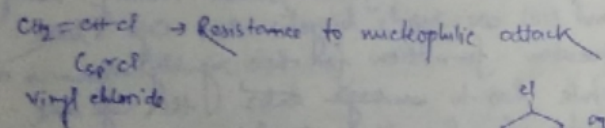 CH2 = CH-Cl → Resistance to nucleophilic attack
Csp2-Cl
Vinyl chloride
Cl